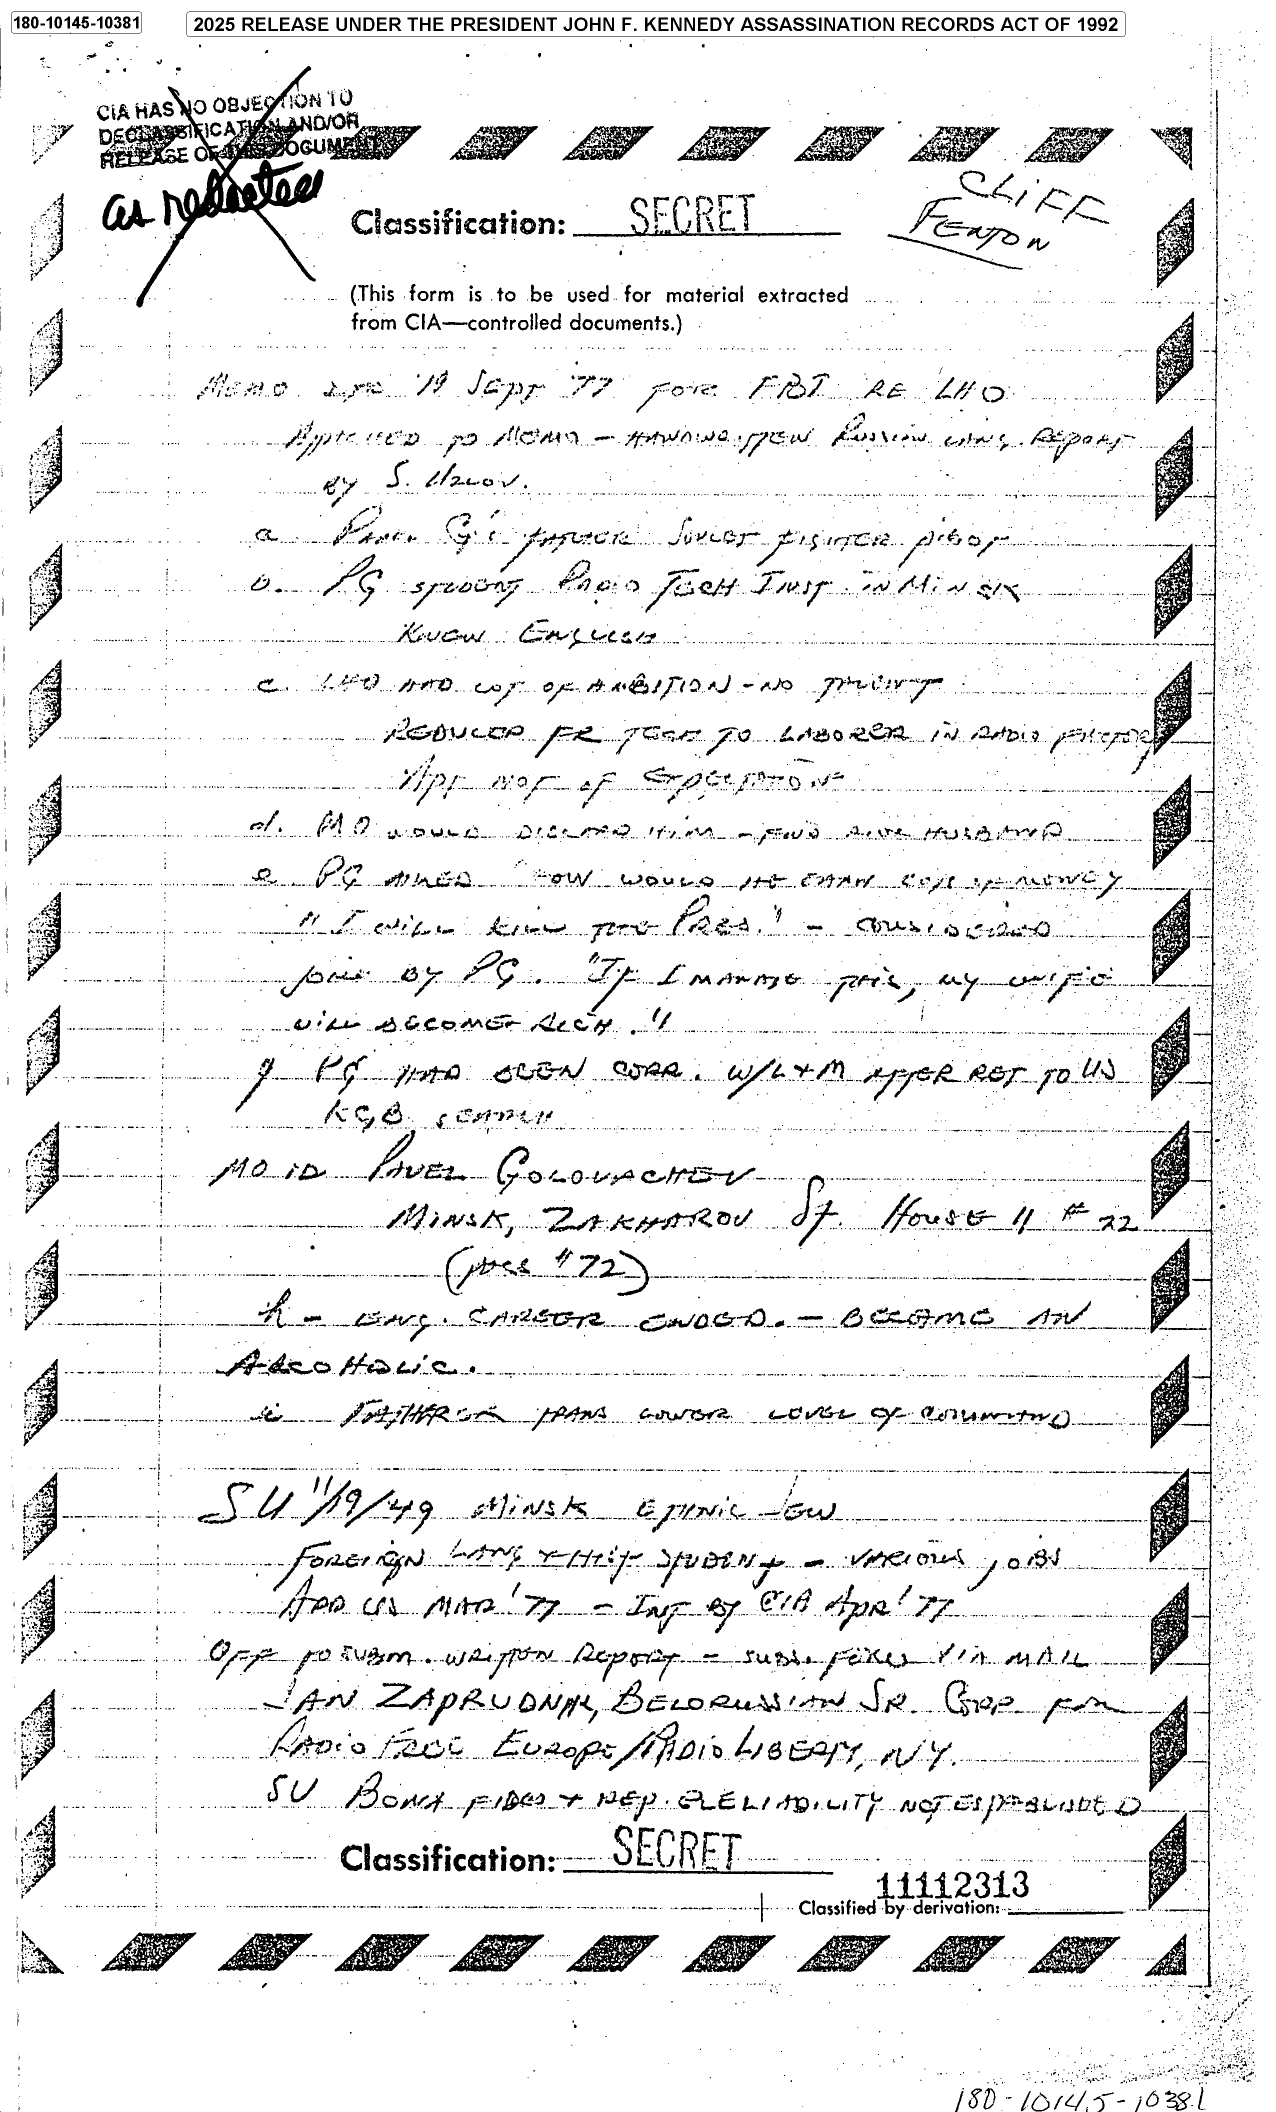 180-10145-10381
2025 RELEASE UNDER THE PRESIDENT JOHN F. KENNEDY ASSASSINATION RECORDS ACT OF 1992
CIA HAS NO OBJECTION TO
DECLASSIFICATION AND/OR
RELEASE OF THIS DOCUMENT
as redacted
Classification: SECRET
CLIFF
FENTON
(This form is to be used for material extracted
from CIA—controlled documents.)
MEMO DTD 19 SEPT '77 FOR FBI RE LHO
ATTACHED TO MEMO - HANDWRITTEN RUSSIAN LANG. REPORT
BY S. UZLOV.
a PAVEL G's FATHER SOVIET FIGHTER PILOT
b. PG STUDENT RADIO TECH INST. IN MINSK
KNEW ENGLISH
c. LHO HAD LOT OF AMBITION - NO TALENT
REDUCED FR TECH TO LABORER IN RADIO FACTORY
APT NOT OF EXPECTATION
d. MO WOULD DISCARD HIM - FIND RICH HUSBAND
e PG ASKED HOW WOULD HE EARN LOTS OF MONEY
"I WILL KILL THE PRES." - CONSIDERED
JOKE BY PG. "IF I MANAGE THIS, MY WIFE
WILL BECOME RICH."
g PG HAD BEEN CORR. W/L+M AFTER RET TO US
KGB SEARCH
MO ID PAVEL GOLOVACHEV
MINSK, ZAKHAROV ST. HOUSE 11 # 22
( #72)
h - ENG. CAREER ENDED. - BECAME AN
ALCOHOLIC.
i FATHER TRANS LOWER LEVEL OF COMMAND
SU 11/19/49 MINSK ETHNIC JEW
FOREIGN LANG + HIST STUDENT - VARIOUS JOBS
ARR US MAR '77 - INT BY CIA APR '77
OFF TO SUBM. WRITTEN REPORT - SUBS. FWD VIA MAIL
JAN ZAPRUDNIK, BELORUSSIAN SR. CORR. FOR
RADIO FREE EUROPE/RADIO LIBERTY, NY.
SU BONA FIDES + REP. RELIABILITY NOT ESTABLISHED
Classification: SECRET
11112313
Classified by derivation:
180-10145-10381